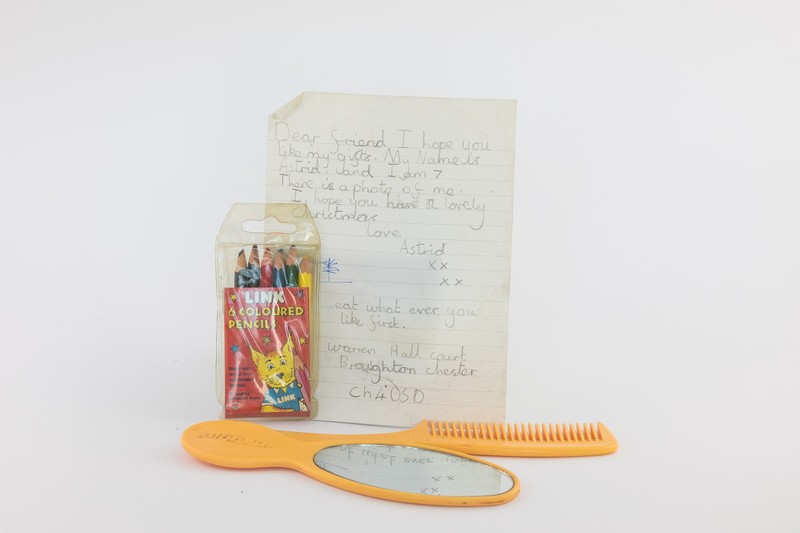 Dear friend I hope you
like my gifts. My Name is
Astrid. and I am 7
There is a photo of me.
I hope you have a lovely
Christmas
love
Astrid
x x
x x
eat what ever you
like first.
warren Hall court
Broughton chester
Ch4 0SD
LINK
6 COLOURED
PENCILS
LINK
of over
x x
x x